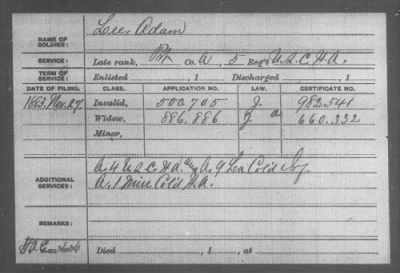 NAME OF SOLDIER: Lee, Adam
SERVICE: Late rank, Pvt Co. A, 5 Reg't U.S.C.H.A.
TERM OF SERVICE: Enlisted , 1 Discharged , 1
DATE OF FILING. CLASS. APPLICATION NO. LAW. CERTIFICATE NO.
1883, Nov. 27. Invalid, 500.705 J. 982.541
Widow, 886.886 J a 660.332
Minor,
ADDITIONAL SERVICES: A. 4 U.S.C.H.A. A. 9 La Col'd Inf
A. 1 Miss. Col'd H.A.
REMARKS:
Died , 1 , at